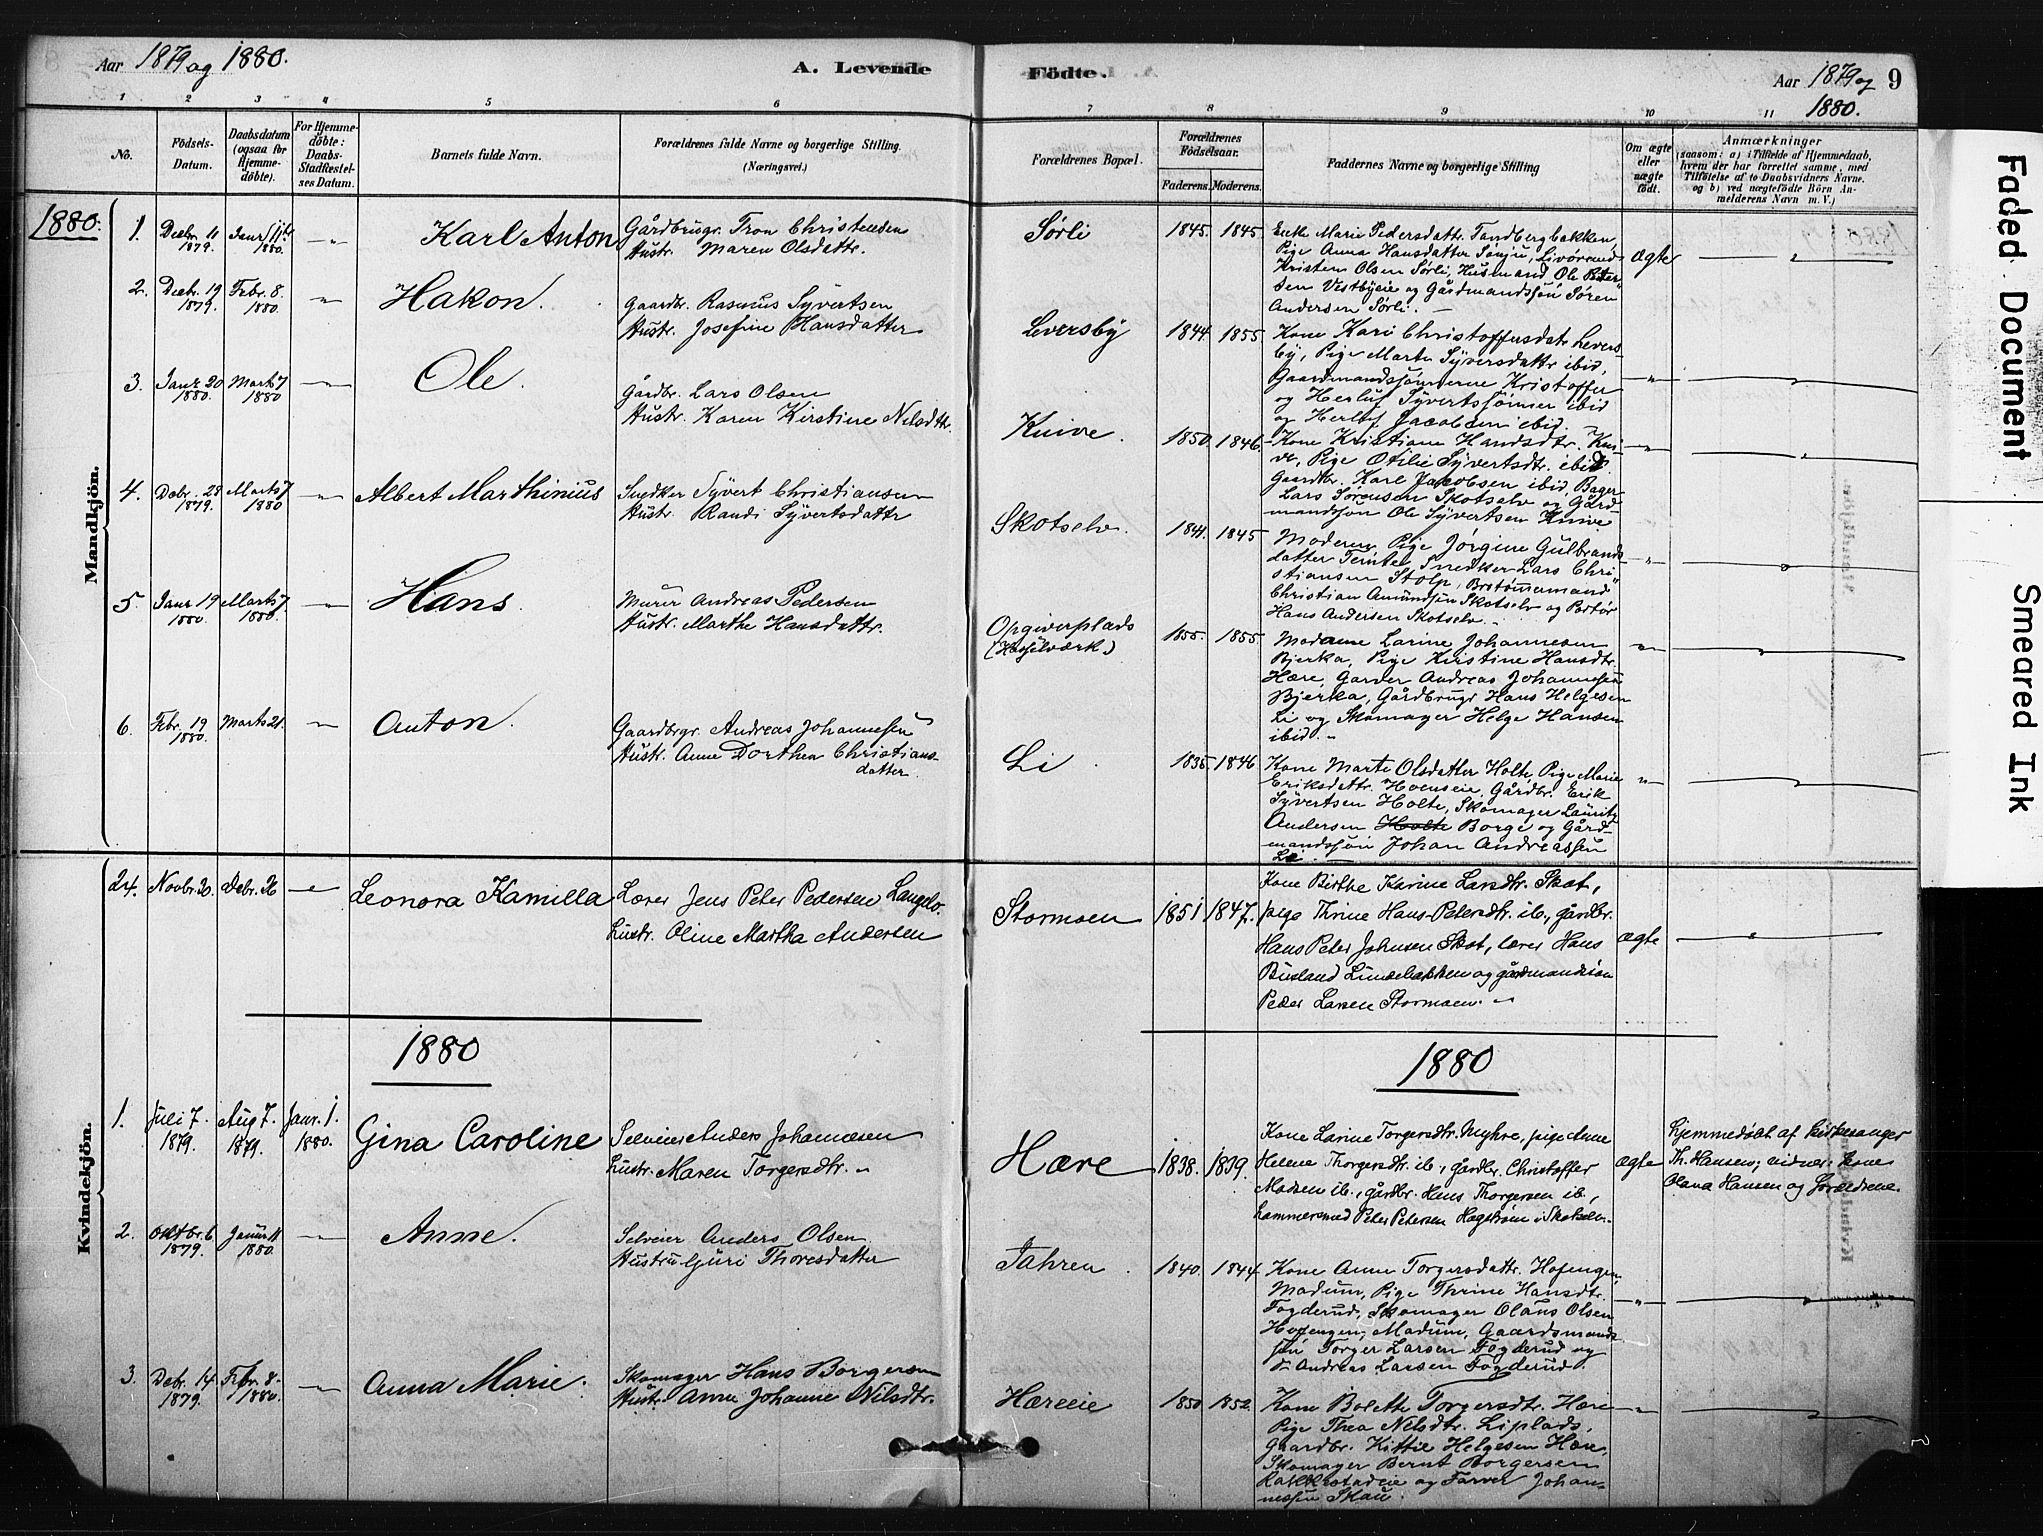 Aar 1879 og 1880.
A. Levende
Födte.
Aar 1879 og 1880.
9
1 2 3 4 5 6 7 8 9 10 11
No.
Födsels-Datum.
Daabsdatum (ogsaa for Hjemme-döbte).
For Hjemme-döbte: Daabs-Stadfæstel-ses Datum.
Barnets fulde Navn.
Forældrenes fulde Navne og borgerlige Stilling. (Næringsvei.)
Forældrenes Bopæl.
Forældrenes Födselsaar.
Faderens. Moderens.
Faddernes Navne og borgerlige Stilling
Om ægte eller uægte födt.
Anmærkninger
(saasom: a) i Tilfælde af Hjemmedaab,
hvem der har forrettet samme, med
Tilföielse af to Daabsvidners Navne.
og b) ved uægtefödte Börn An-
melderens Navn m. V.)
Mandkjön.
1880.
1. Decbr. 11 1879. Janr. 11te 1880. Karl Anton
Gårdbrugr. Tron Christensen
Hustr. Maren Olsdattr.
Sørli 1845. 1845.
Enke Marie Pedersdattr. Tandbergbakken,
Pige Anna Hansdatter
Kristen Olsen Sørli, Husmand Ole Peter-
sen Vestbyeie og Gårdmandssøn Søren
Andersen Sørli.
Ægte
2. Decbr. 19 1879. Febr. 8. 1880. Hakon.
Gaardbr. Rasmus Syvertsen
Hustr. Josefine Hansdatter
Leversby 1844 1855
Kone Kari Christoffersdatr Levers-
by, Pige Marte Syversdattr ibid,
Gaardmandssønnerne Kristoffer
og Herluf Syvertssønner ibid
og Herluf Jacobsen ibid.
3. Janr 20 1880. Marts 7 1880 Ole.
Gårdbr. Lars Olsen
Hustr. Karen Kirstine Nilsdtr.
Knive. 1850. 1846.
Kone Kristiane Handsdtr. Kni-
ve, Pige Otilie Syvertsdtr. ibid
Gaardbr. Karl Jacobsen ibid, Bager
Lars Sørensen Skotselv og Gård-
mandssøn Ole Syvertsen Knive
4. Debr. 28 1879. Marts 7 1880 Albert Marthinius
Snedker Syvert Christiansen
Hustr. Randi Syvertsdattr
Skotselv. 1841. 1845
Moderen, Pige Jørgine Gulbrands-
datter Teinte, Snedker Lars Chri-
stiansen Stolp,
Christian Amundsen Skotselv og
Hans Andersen Skotselv.
5. Janr 19 1880. Marts 7 1880. Hans.
Murer Andreas Pedersen
Hustr. Marthe Hansdattr.
Opgiverplads
(Hasselværk.) 1855. 1855
Madame Larine Johannesen
Bjerka, Pige Kristine Hansdtr.
Hære, Garver Andreas Johannessen
Bjerka, Gårdbrugr Hans Helgesen
Li og Skomager Helge Hansen
ibid.
6. Febr. 19 1880. Marts 21. Anton.
Gaardbrgr. Andreas Johannesen
Hustr. Anne Dorthea Christians-
datter.
Li. 1835. 1846
Kone Marte Olsdatter Holte, Pige Marie
Eriksdattr. Hoenseie, Gårdbr. Erik
Syvertsen Holte, Skomager Lauritz
Andersen Holte Borge og Gård-
mandssøn Johan Andreassen
Li.
Kvindekjön.
24. Novbr. 20. Debr. 26 Leonora Kamilla
Lærer Jens Peter Pedersen Langelv.
hustr. Oline Martha Andersen
Stormoen 1851 1847.
Kone Birthe Karine Larsdtr. Skot,
pige Thrine Hans-Petersdtr. ib., gårdbr.
Hans Peter Johnsen Skot, lærer Hans
Busland Lundebakken og gårdmandssøn
Peder Larsen Stormoen.
Ægte
1880
1880
1. Juli 7. 1879. Aug 7. 1879. Janr. 1. 1880. Gina Caroline
Selveier Anders Johannesen
hustr. Maren Torgersdtr.
Hære 1838. 1839.
Kone Larine Torgersdtr. Myhre, pige Anne
Helene Thorgersdtr. ib., gårdbr. Christoffer
Madsen ib., gårdbr. Hans Thorgersen ib,
hammersmed Peter Petersen Hagstrøm i Skotselv.
Ægte
hjemmedøbt af kirkesanger
Th. Hansen; vidner: kone
Olava Hansen og forældrene.
2. Oktbr. 6 1879. Januar 11 1880. Anne.
Selveier Anders Olsen
Hustru Guri Thoresdatter
Jahren. 1840. 1844
Kone Anne Torgersdattr. Hofengen,
Modum, Pige Thrine Hansdtr.
Fogderud, Skomager Olaus Olsen
Hofengen, Modum, Gaardsmands-
søn Torger Larsen Fogderud og
Andreas Larsen Fogderud.
3. Debr. 14 1879. Febr. 8. 1880. Anna Marie.
Skomager Hans Borgersen
Hustr. Anne Johanne Nilsdtr.
Hæreeie 1850 1852.
Kone Bolette Torgersdtr. Hære
Pige Thea Nilsdtr. Liplads,
Gaardbr. Kittil Helgesen Hære,
Skomager Bernt Borgersen
og Farver Johan-
nessen Skau.
Faded Document
Smeared Ink